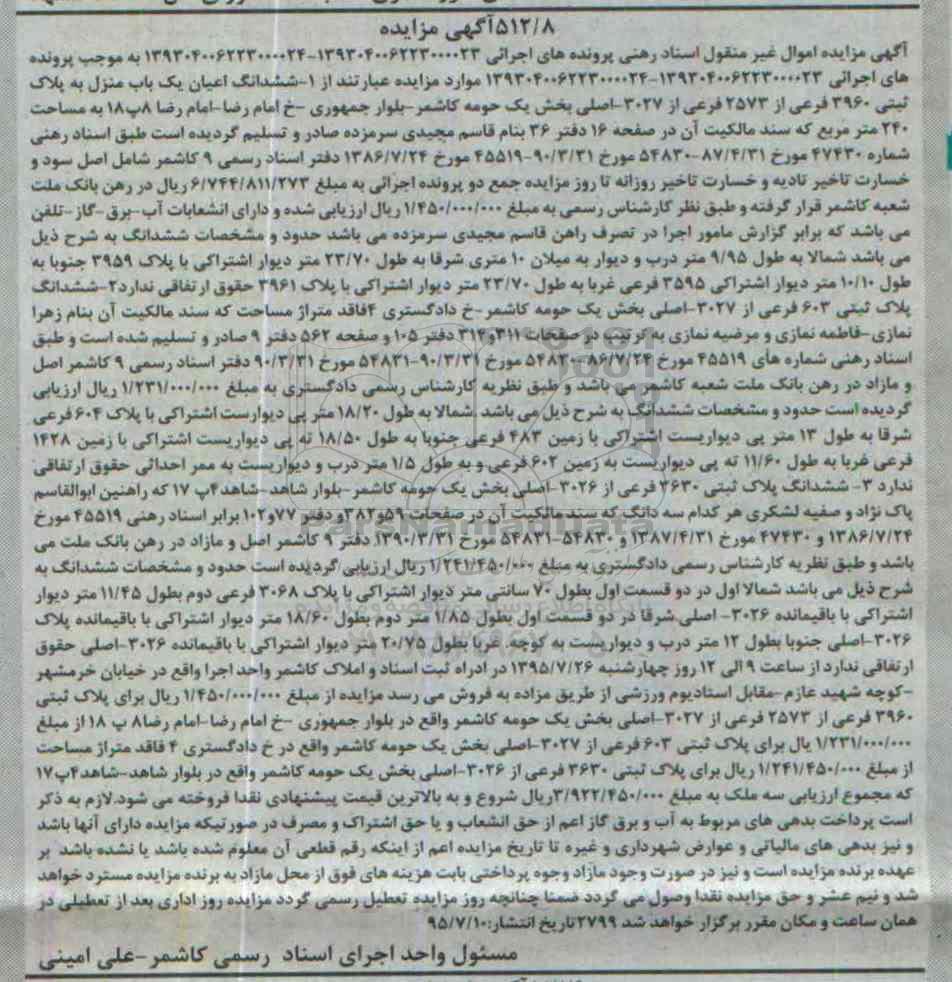 ۵۱۲/۸آگهی مزایده
آگهی مزایده اموال غیر منقول اسناد رهنی پرونده های اجرائی ۱۳۹۳۰۴۰۰۶۲۲۳۰۰۰۰۲۳-۱۳۹۳۰۴۰۰۶۲۲۳۰۰۰۰۲۴ به موجب پرونده
های اجرائی ۱۳۹۳۰۴۰۰۶۲۲۳۰۰۰۰۲۳-۱۳۹۳۰۴۰۰۶۲۲۳۰۰۰۰۲۴ موارد مزایده عبارتند از ۱-ششدانگ اعیان یک باب منزل به پلاک
ثبتی ۳۹۶۰ فرعی از ۲۵۷۳ فرعی از ۳۰۲۷-اصلی بخش یک حومه کاشمر-بلوار جمهوری -خ امام رضا-امام رضا ۸پ۱۸ به مساحت
۲۴۰ متر مربع که سند مالکیت آن در صفحه ۱۶ دفتر ۳۶ بنام قاسم مجیدی سرمزده صادر و تسلیم گردیده است طبق اسناد رهنی
شماره ۴۷۴۳۰ مورخ ۸۷/۴/۳۱-۵۴۸۳۰ مورخ ۹۰/۳/۳۱-۴۵۵۱۹ مورخ ۱۳۸۶/۷/۲۴ دفتر اسناد رسمی ۹ کاشمر شامل اصل سود و
خسارت تاخیر تادیه و خسارت تاخیر روزانه تا روز مزایده جمع دو پرونده اجرائی به مبلغ ۶/۷۴۴/۸۱۱/۲۷۳ ریال در رهن بانک ملت
شعبه کاشمر قرار گرفته و طبق نظر کارشناس رسمی به مبلغ ۱/۴۵۰/۰۰۰/۰۰۰ ریال ارزیابی شده و دارای انشعابات آب-برق-گاز-تلفن
می باشد که برابر گزارش مامور اجرا در تصرف راهن قاسم مجیدی سرمزده می باشد حدود و مشخصات ششدانگ به شرح ذیل
می باشد شمالا به طول ۹/۹۵ متر درب و دیوار به میلان ۱۰ متری شرقا به طول ۲۳/۷۰ متر دیوار اشتراکی با پلاک ۳۹۵۹ جنوبا به
طول ۱۰/۱۰ متر دیوار اشتراکی ۳۵۹۵ فرعی غربا به طول ۲۳/۷۰ متر دیوار اشتراکی با پلاک ۳۹۶۱ حقوق ارتفاقی ندارد۲-ششدانگ
پلاک ثبتی ۶۰۳ فرعی از ۳۰۲۷-اصلی بخش یک حومه کاشمر-خ دادگستری ۴فاقد متراژ مساحت که سند مالکیت آن بنام زهرا
نمازی-فاطمه نمازی و مرضیه نمازی به ترتیب در صفحات ۳۱۱و۳۱۴ دفتر ۱۰۵ و صفحه ۵۶۲ دفتر ۹ صادر و تسلیم شده است و طبق
اسناد رهنی شماره های ۴۵۵۱۹ مورخ ۸۶/۷/۲۴-۵۴۸۳۰ مورخ ۹۰/۳/۳۱-۵۴۸۳۱ مورخ ۹۰/۳/۳۱ دفتر اسناد رسمی ۹ کاشمر اصل
و مازاد در رهن بانک ملت شعبه کاشمر می باشد و طبق نظریه کارشناس رسمی دادگستری به مبلغ ۱/۲۳۱/۰۰۰/۰۰۰ ریال ارزیابی
گردیده است حدود و مشخصات ششدانگ به شرح ذیل می باشد شمالا به طول ۱۸/۲۰ متر پی دیوارست اشتراکی با پلاک ۶۰۴ فرعی
شرقا به طول ۱۳ متر پی دیواریست اشتراکی با زمین ۴۸۳ فرعی جنوبا به طول ۱۸/۵۰ ته پی دیواریست اشتراکی با زمین ۱۴۲۸
فرعی غربا به طول ۱۱/۶۰ ته پی دیواریست به زمین ۶۰۲ فرعی و به طول ۱/۵ متر درب و دیواریست به ممر احداثی حقوق ارتفاقی
ندارد ۳- ششدانگ پلاک ثبتی ۳۶۳۰ فرعی از ۳۰۲۶-اصلی بخش یک حومه کاشمر-بلوار شاهد-شاهد۴پ ۱۷ که راهنین ابوالقاسم
پاک نژاد و صفیه لشکری هر کدام سه دانگ که سند مالکیت آن در صفحات ۵۹و۳۸۲و دفتر ۷۷و۱۰۲ برابر اسناد رهنی ۴۵۵۱۹ مورخ
۱۳۸۶/۷/۲۴ و ۴۷۴۳۰ مورخ ۱۳۸۷/۴/۳۱ و ۵۴۸۳۰-۵۴۸۳۱ مورخ ۱۳۹۰/۳/۳۱ دفتر ۹ کاشمر اصل و مازاد در رهن بانک ملت می
باشد و طبق نظریه کارشناس رسمی دادگستری به مبلغ ۱/۲۴۱/۴۵۰/۰۰۰ ریال ارزیابی گردیده است حدود و مشخصات ششدانگ به
شرح ذیل می باشد شمالا اول در دو قسمت اول بطول ۷۰ سانتی متر دیوار اشتراکی با پلاک ۳۰۶۸ فرعی دوم بطول ۱۱/۴۵ متر دیوار
اشتراکی با باقیمانده ۳۰۲۶- اصلی شرقا در دو قسمت اول بطول ۱/۸۵ متر دوم بطول ۱۸/۶۰ متر دیوار اشتراکی با باقیمانده پلاک
۳۰۲۶-اصلی جنوبا بطول ۱۲ متر درب و دیواریست به کوچه غربا بطول ۲۰/۷۵ متر دیوار اشتراکی با باقیمانده ۳۰۲۶-اصلی حقوق
ارتفاقی ندارد از ساعت ۹ الی ۱۲ روز چهارشنبه ۱۳۹۵/۷/۲۶ در ادراه ثبت اسناد و املاک کاشمر واحد اجرا واقع در خیابان خرمشهر
-کوچه شهید عازم-مقابل استادیوم ورزشی از طریق مزاده به فروش می رسد مزایده از مبلغ ۱/۴۵۰/۰۰۰/۰۰۰ ریال برای پلاک ثبتی
۳۹۶۰ فرعی از ۲۵۷۳ فرعی از ۳۰۲۷-اصلی بخش یک حومه کاشمر واقع در بلوار جمهوری -خ امام رضا-امام رضا۸ پ ۱۸ از مبلغ
۱/۲۳۱/۰۰۰/۰۰۰ یال برای پلاک ثبتی ۶۰۳ فرعی از ۳۰۲۷-اصلی بخش یک حومه کاشمر واقع در خ دادگستری ۴ فاقد متراژ مساحت
از مبلغ ۱/۲۴۱/۴۵۰/۰۰۰ ریال برای پلاک ثبتی ۳۶۳۰ فرعی از ۳۰۲۶-اصلی بخش یک حومه کاشمر واقع در بلوار شاهد-شاهد۴پ۱۷
که مجموع ارزیابی سه ملک به مبلغ ۳/۹۲۲/۴۵۰/۰۰۰ریال شروع و به بالاترین قیمت پیشنهادی نقدا فروخته می شود.لازم به ذکر
است پرداخت بدهی های مربوط به آب و برق گاز اعم از حق انشعاب و یا حق اشتراک و مصرف در صورتیکه مزایده دارای آنها باشد
و نیز بدهی های مالیاتی و عوارض شهرداری و غیره تا تاریخ مزایده اعم از اینکه رقم قطعی آن معلوم شده باشد یا نشده باشد بر
عهده برنده مزایده است و نیز در صورت وجود مازاد وجوه پرداختی بابت هزینه های فوق از محل مازاد به برنده مزایده مسترد خواهد
شد و نیم عشر و حق مزایده نقدا وصول می گردد ضمنا چنانچه روز مزایده تعطیل رسمی گردد مزایده روز اداری بعد از تعطیلی در
همان ساعت و مکان مقرر برگزار خواهد شد ۲۷۹۹تاریخ انتشار:۹۵/۷/۱۰
مسئول واحد اجرای اسناد رسمی کاشمر-علی امینی
ParsNamadData